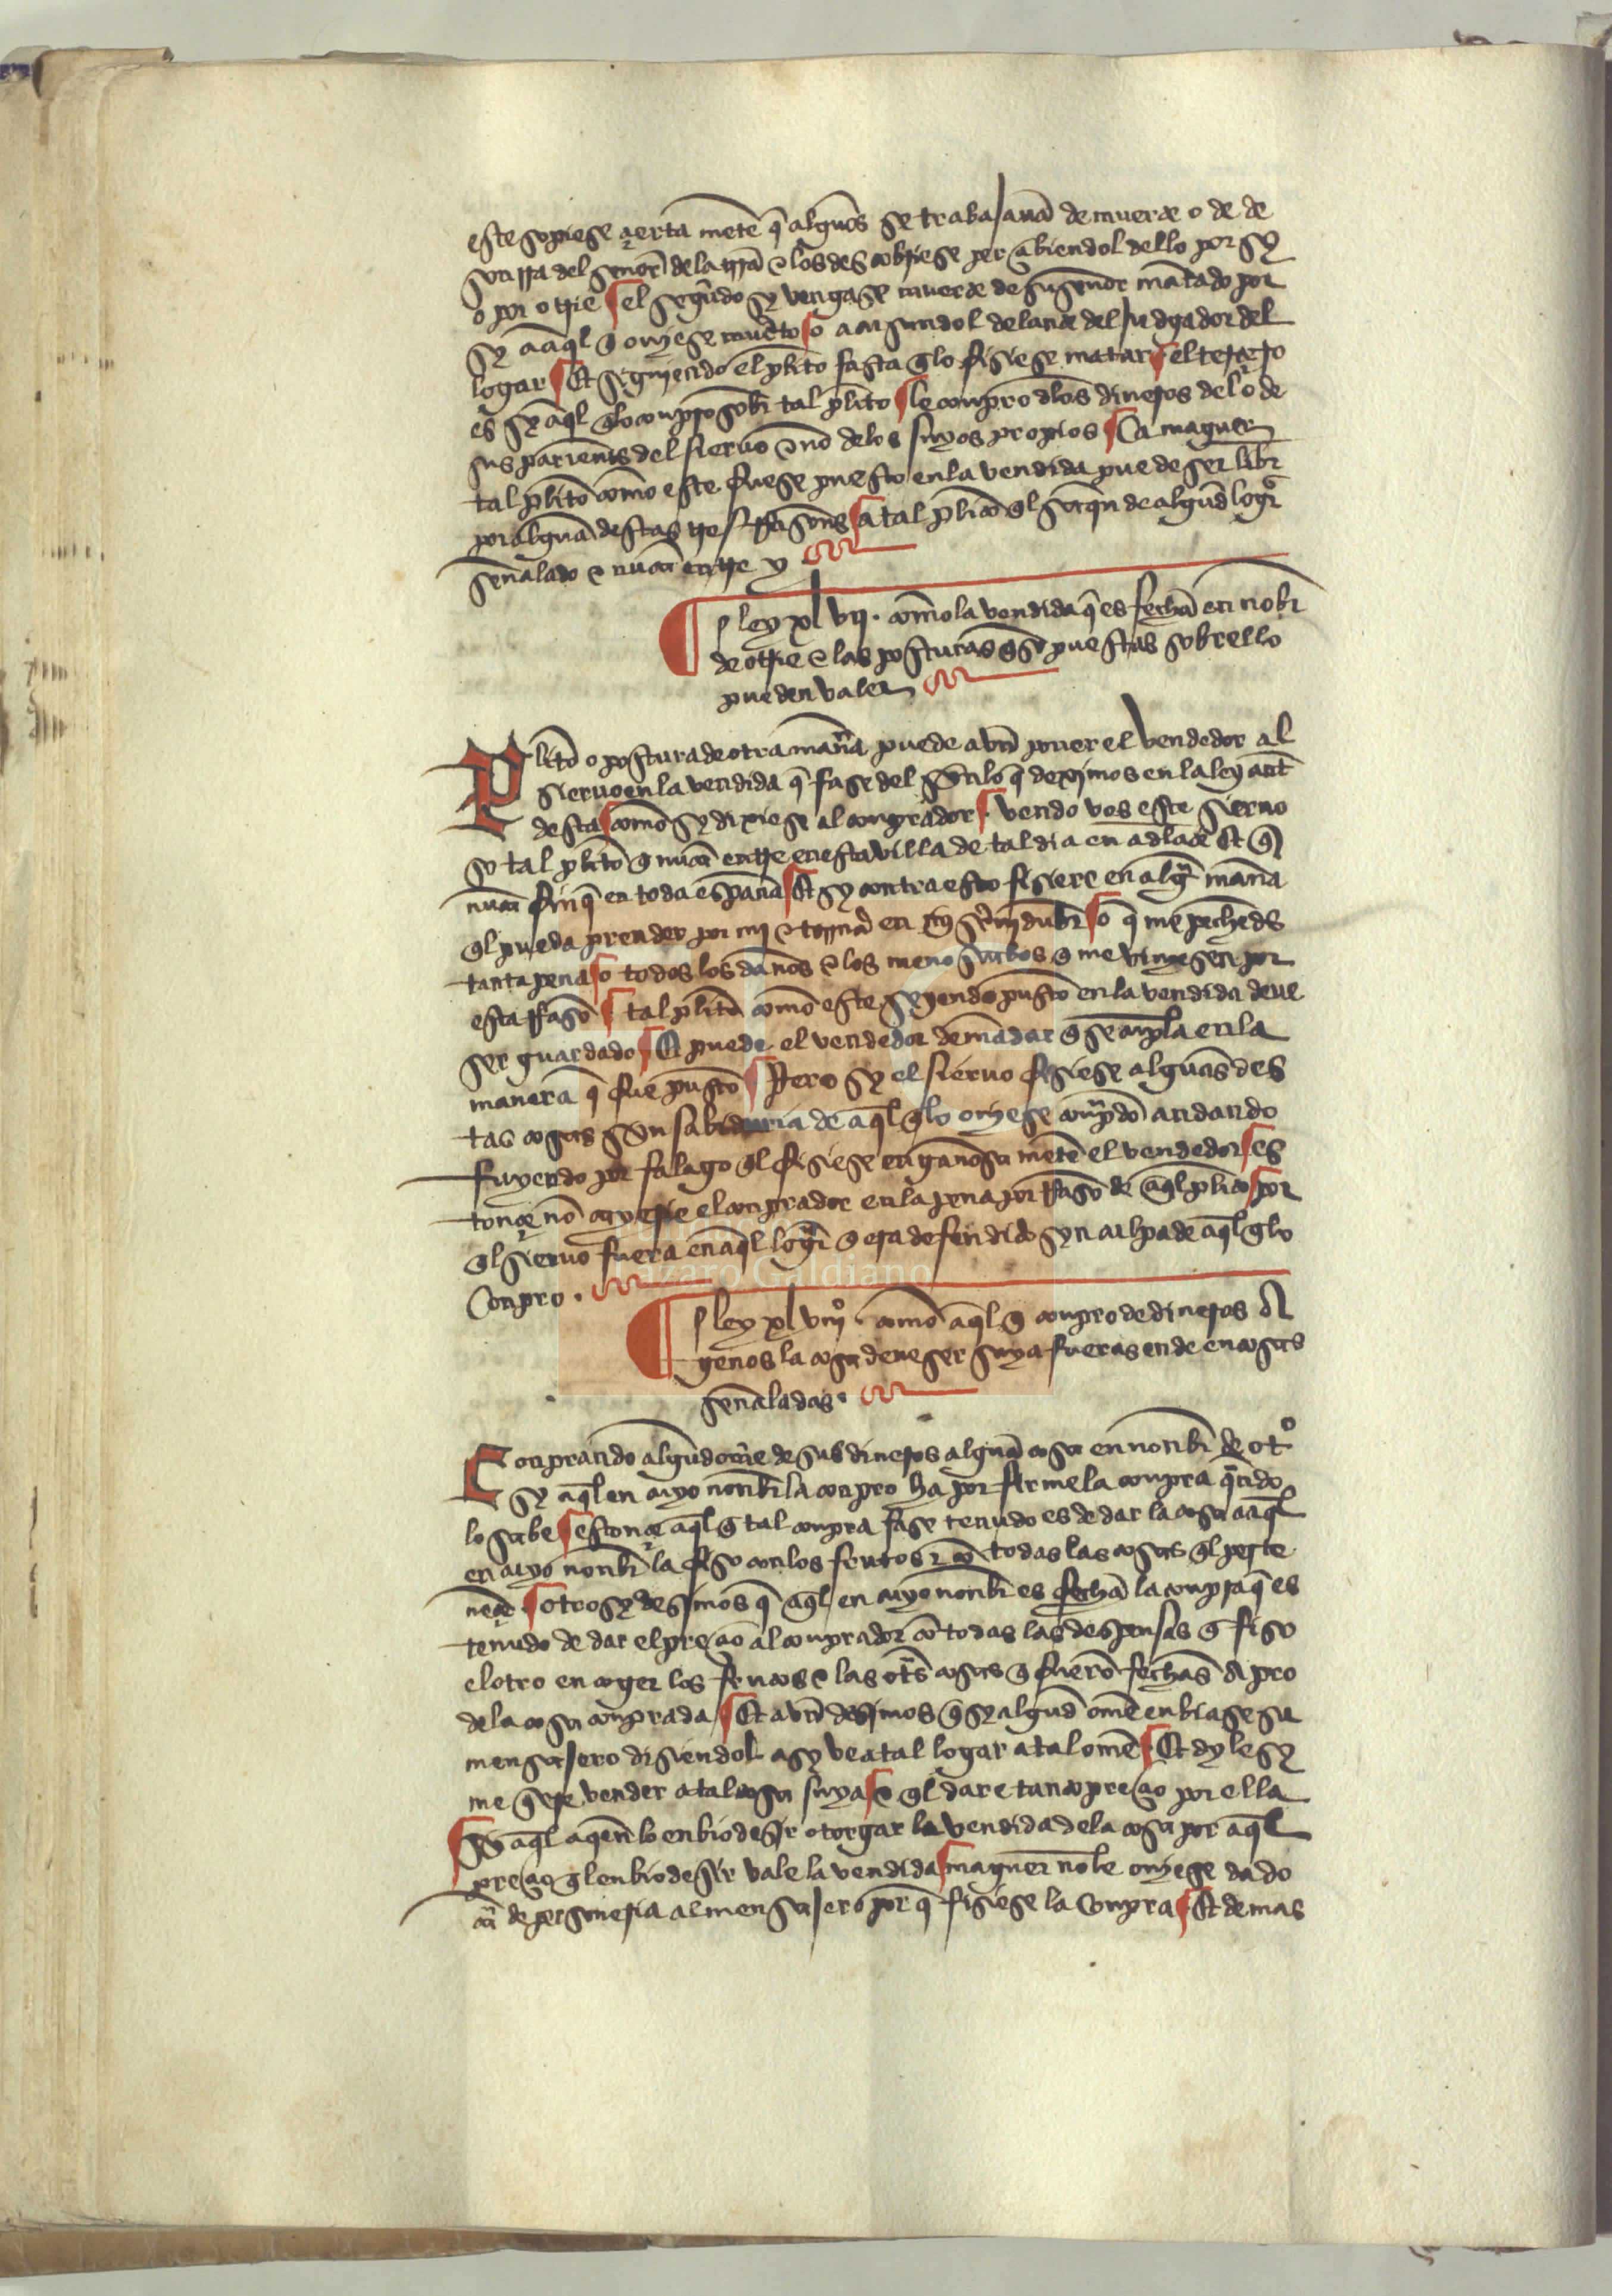 este sopiese çierta mẽte q̃ algunos se trabajauã de muerte o de de
son rra del señor de la trrã ⁊ los descobriese perçibiendol dello por sy
o por otrie el segũdo sy vengase muerte de su señor matado por
sy a aq̃l q̃ ouiese muẽto o acusandol delante del judgador del
logar Et siguiendo el plito fasta q̃lo fisiese matar el terçero
es sy aq̃l q̃lo conpro sobr̃ tal plito le conpro dlos dineros del o de
sus parientes del sieruo ⁊ nõ delos suyos propios Ca maguer
tal plito commo este fuese puesto enla vendida puede ser libr̃
por alguna destas tres rrasones a tal plito q̃l saquẽ de algud logr̃
señalado ⁊ nunca entre y
ley xl vij. commo la vendida q̃ es fecha en nobr̃
de otrie ⁊ las posturas q̃ sõ puestas sobrello
pueden valer
Plito o postura de otra manera puede avn poner el vendedor al
sieruo enla vendida q̃ fase del sy̅n lo q̃ deximos en la ley ant̃
desta commo sy dixiese al conprador vendo vos este sieruo
so tal plito q̃ nunca entre en esta villa de tal dia en adlante Et q̃
nunca finq̃ en toda españa Et sy contra esto fisiere en algr̃ manera
q̃l pueda prender por mi ⁊ tornar̃ en mj seruidũbr̃ o q̃ me pechedes
tanta pena o todos los daños ⁊ los menoscabos q̃ me viniesen por
esta rrasõ tal plito commo este seyendo puesto enla vendida deue
ser guardado Et puede el vendedor demãdar q̃ se cunpla enla
manera q̃ fue puesto Pero sy el sieruo fisiese algunas des
tas cosas syn sabiduria de aq̃l q̃lo ouiese conprdo andando
fuyendo por falago q̃l fisiese engañosa mẽte el vendedor es
tonçe nõ cayerie el conprador enla pena por rrasõ de aq̃l plito por
q̃l sieruo fuera en aq̃l logr̃ q̃ era defendido syn culpa de aq̃l q̃lo
Conpro.
ley xl viijº. commo aq̃l q̃ conpro de dineros A
genos la cosa deue ser suya fueras ende en cosas
señaladas.
Conprando algud om̃e de sus dineros alguna cosa en nonbr̃ de otº
sy aq̃l en cuyo nonbr̃ la conpro ha por firme la conpra qñdo
lo sabe estonçe aq̃l q̃ tal conpra fase tenudo es de dar la cosa a aq̃l
en cuyo nonbr̃ la fiso con los frutos ⁊ cõ todas las cosas q̃l perte
neçe otrosy desimos q̃ aq̃l en cuyo nonbr̃ es fecha la conpra q̃ es
tenudo de dar el preçio al conprador cõ todas las despensas q̃ fiso
el otro en coger los frutos ⁊ las otrs cosas q̃ fuerõ fechas A pro
dela cosa conprada Et avn desimos q̃ sy algud ome enbiase su
mensajero disiendol asy ve a tal logar a tal ome Et dyle sy
me q̃ere vender a tal cosa suya ⁊ q̃l dare tanto preçio por ella
Sy aq̃l a quien lo enbio desir otorgar la vendida dela cosa por aq̃l
preçio q̃l enbio desir vale la vendida maguer nole ouiese dado
cã de personeria al mensajero por q̃ fisiese la Conpra Et demas